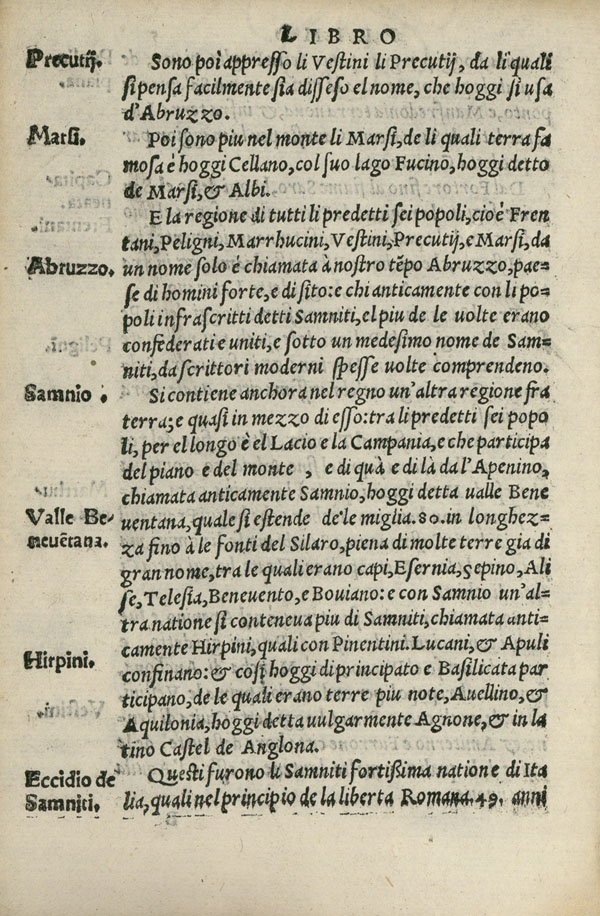 LIBRO
Precutij.
Sono poi appresso li Vestini li Precutij, da li quali
si pensa facilmente sia disseso el nome, che hoggi si usa
d'Abruzzo.
Marsi.
Poi sono piu nel monte li Marsi, de li quali terra fa
mosa è hoggi Cellano, col suo lago Fucino, hoggi detto
de Marsi, & Albi.
E la regione di tutti li predetti sei popoli, cioè Fren
tani, Peligni, Marrhucini, Vestini, Precutij, e Marsi, da
Abruzzo.
un nome solo é chiamata à nostro tẽpo Abruzzo, pae=
se di homini forte, e di sito: e chi anticamente con li po=
poli infrascritti detti Samniti, el piu de le uolte erano
confederati e uniti, e sotto un medesimo nome de Sam=
niti, da scrittori moderni spesse uolte comprendeno.
Samnio .
Si contiene anchora nel regno un'altra regione fra
terra; e quasi in mezzo di esso: tra li predetti sei popo
li, per el longo è el Lacio e la Campania, e che participa
del piano e del monte , e di quà e di là da l'Apenino,
chiamata anticamente Samnio, hoggi detta ualle Bene
Valle Be-
neuẽtana.
uentana, quale si estende de le miglia .80. in longhez=
za fino à le fonti del Silaro, piena di molte terre gia di
gran nome, tra le quali erano capi, Esernia, sepino, Ali
se, Telesia, Beneuento, e Bouiano: e con Samnio un'al=
tra natione si conteneua piu di Samniti, chiamata anti=
camente Hirpini, quali con Pinentini. Lucani, & Apuli
Hirpini.
confinano: & così hoggi di principato e Basilicata par
ticipano, de le quali erano terre piu note, Auellino, &
Aquilonia, hoggi detta uulgarmente Agnone, & in la
tino Castel de Anglona.
Eccidio de
Samniti.
Questi furono li Samniti fortissima natione di Ita
lia, quali nel principio de la liberta Romana .49. anni